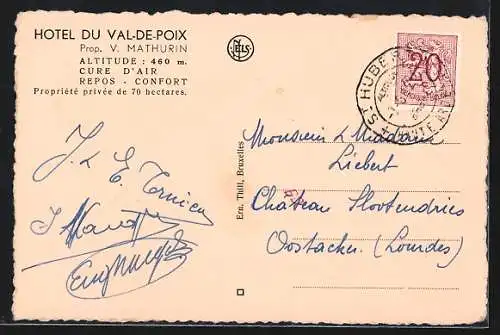 HOTEL DU VAL-DE-POIX
Prop. V. MATHURIN
ALTITUDE : 460 m.
CURE D'AIR
REPOS - CONFORT
Propriété privée de 70 hectares.
NELS
Ern. Thill, Bruxelles
ST HUBE
20
Monsieur & Madame
Liebert
Château Slotendries
Oostacker (Lourdes)
J. & E.